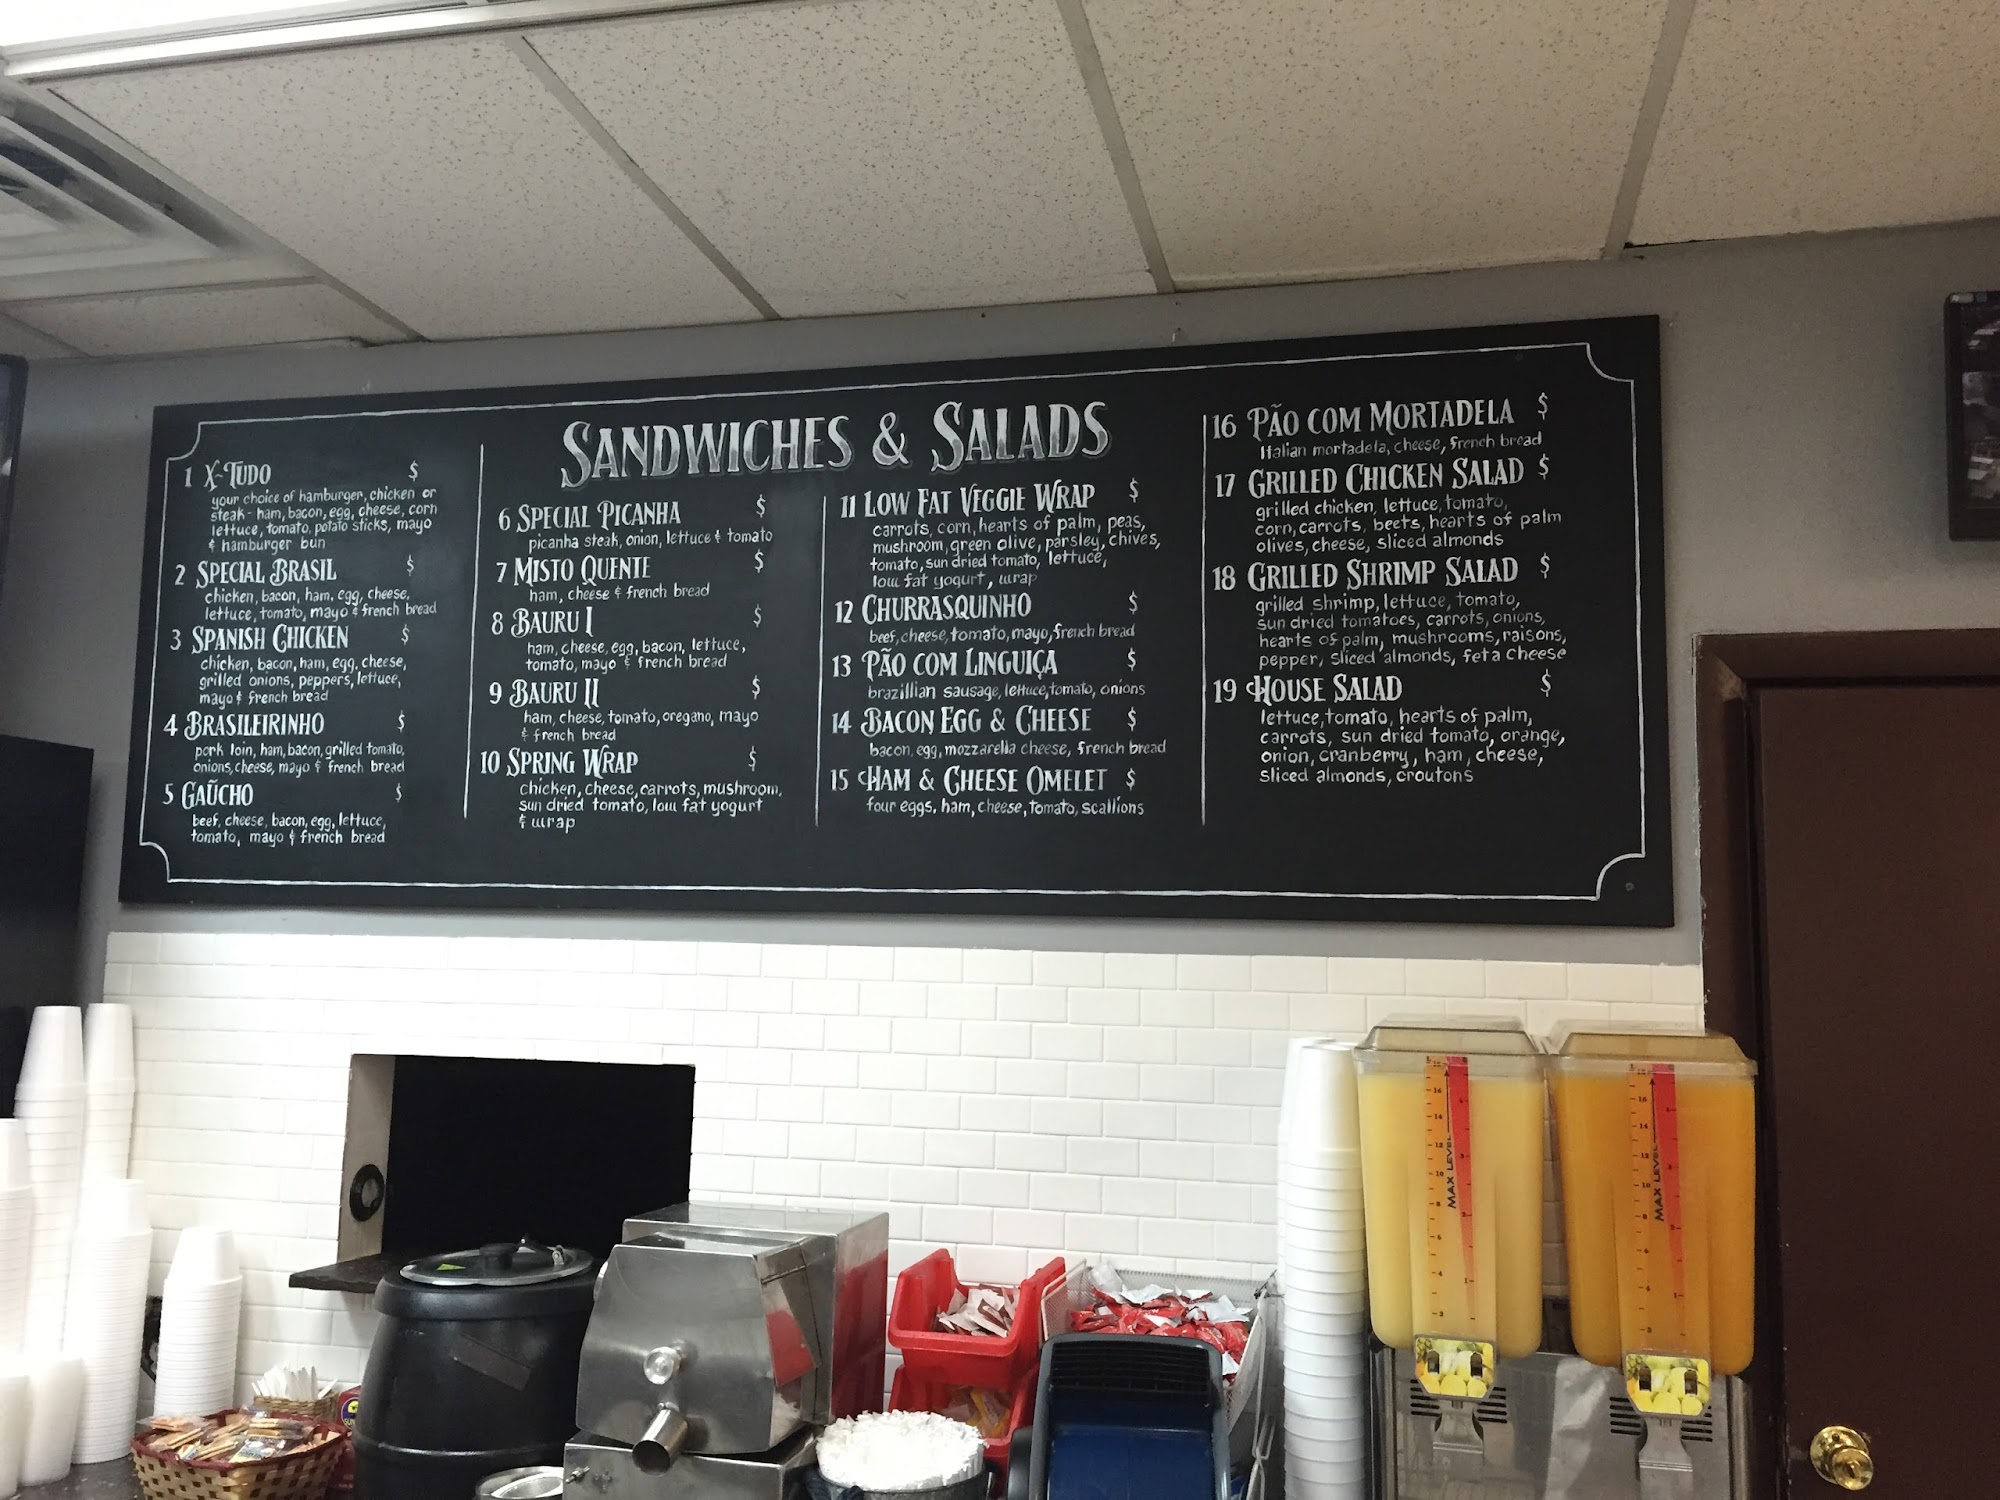 SANDWICHES & SALADS
1 X-TUDO $
your choice of hamburger, chicken or
steak - ham, bacon, egg, cheese, corn
lettuce, tomato, potato sticks, mayo
& hamburger bun
2 SPECIAL BRASIL $
chicken, bacon, ham, egg, cheese,
lettuce, tomato, mayo & french bread
3 SPANISH CHICKEN $
chicken, bacon, ham, egg, cheese,
grilled onions, peppers, lettuce,
mayo & french bread
4 BRASILEIRINHO $
pork loin, ham, bacon, grilled tomato,
onions, cheese, mayo & french bread
5 GAŨCHO $
beef, cheese, bacon, egg, lettuce,
tomato, mayo & french bread
6 SPECIAL PICANHA $
picanha steak, onion, lettuce & tomato
7 MISTO QUENTE $
ham, cheese & french bread
8 BAURU I $
ham, cheese, egg, bacon, lettuce,
tomato, mayo & french bread
9 BAURU II $
ham, cheese, tomato, oregano, mayo
& french bread
10 SPRING WRAP $
chicken, cheese, carrots, mushroom,
sun dried tomato, low fat yogurt
& wrap
11 LOW FAT VEGGIE WRAP $
carrots, corn, hearts of palm, peas,
mushroom, green olive, parsley, chives,
tomato, sun dried tomato, lettuce,
low fat yogurt, wrap
12 CHURRASQUINHO $
beef, cheese, tomato, mayo, french bread
13 PÃO COM LINGUIÇA $
brazillian sausage, lettuce, tomato, onions
14 BACON EGG & CHEESE $
bacon, egg, mozzarella cheese, french bread
15 HAM & CHEESE OMELET $
four eggs, ham, cheese, tomato, scallions
16 PÃO COM MORTADELA $
Italian mortadela, cheese, french bread
17 GRILLED CHICKEN SALAD $
grilled chicken, lettuce, tomato,
corn, carrots, beets, hearts of palm
olives, cheese, sliced almonds
18 GRILLED SHRIMP SALAD $
grilled shrimp, lettuce, tomato,
sun dried tomatoes, carrots, onions,
hearts of palm, mushrooms, raisons,
pepper, sliced almonds, feta cheese
19 HOUSE SALAD $
lettuce, tomato, hearts of palm,
carrots, sun dried tomato, orange,
onion, cranberry, ham, cheese,
sliced almonds, croutons
MAX LEVEL
MAX LEVEL